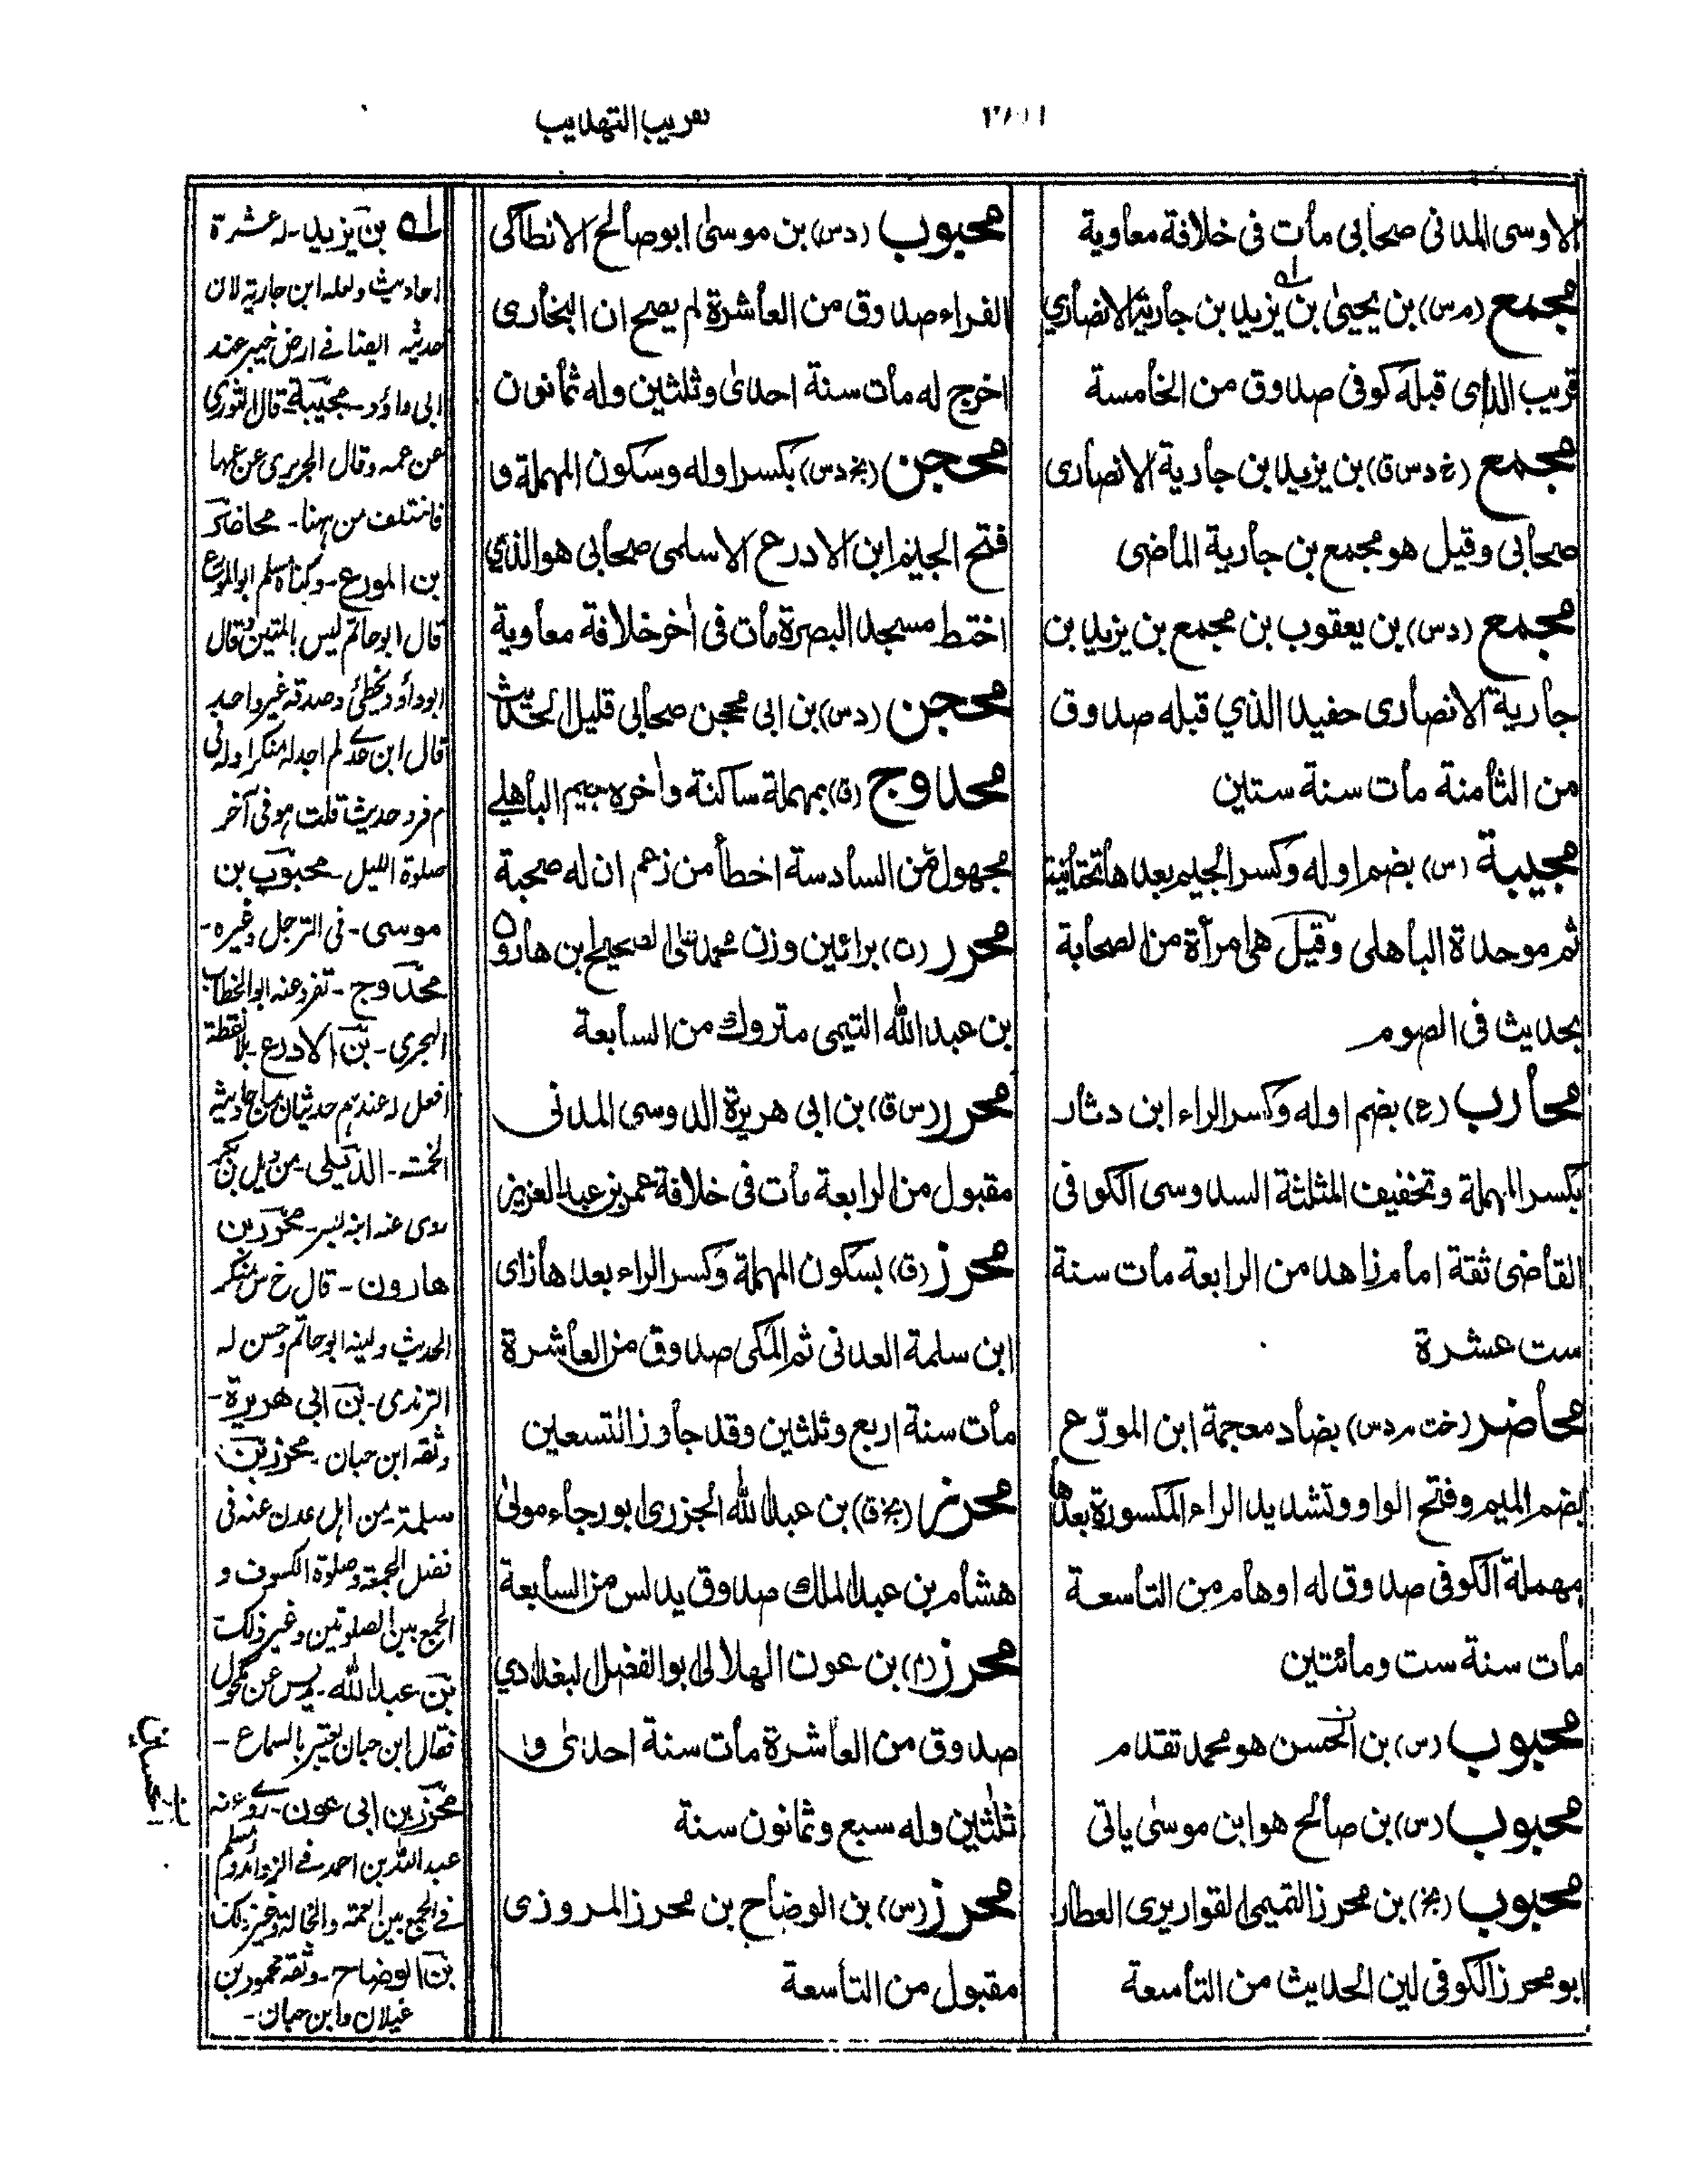 تقريب التهذيب
الاوسى المدنى صحابى مات فى خلافة معاوية
مجمع (م س) بن يحيىٰ بن يزيد بن جارية الانصاري
قريب الذى قبله كوفى صدوق من الخامسة
مجمع (خ د س ق) بن يزيد بن جارية الانصارى
صحابى وقيل هو مجمع بن جارية الماضى
مجمع (د س) بن يعقوب بن مجمع بن يزيد بن
جارية الانصارى حفيد الذي قبله صدوق
من الثامنة مات سنة ستين
مجيبة (س) بضم اوله وكسر الجيم بعدها تحتانية
ثم موحدة الباهلى وقيل هى امرأة من الصحابة
بحديث فى الصوم
محارب (ع) بضم اوله وكسر الراء ابن دثار
بكسر المهملة وتخفيف المثلثة السدوسى الكوفى
القاضى ثقة امام زاهد من الرابعة مات سنة
ست عشرة
محاضر (خت م د س) بضاد معجمة ابن المورّع
بضم الميم وفتح الواو وتشديد الراء المكسورة بعدها
مهملة الكوفى صدوق له اوهام من التاسعة
مات سنة ست ومائتين
محبوب (س) بن الحسن هو محمد تقدم
محبوب (س) بن صالح هو ابن موسىٰ ياتى
محبوب (بخ) بن محرز التميمى القواريرى العطار
ابو محرز الكوفى لين الحديث من التاسعة
محبوب (د س) بن موسىٰ ابو صالح الانطاكى
الفراء صدوق من العاشرة لم يصح ان البخارى
اخرج له مات سنة احدىٰ وثلثين وله ثمانون
محجن (بخ د س) بكسر اوله وسكون المهملة و
فتح الجيم ابن الادرع الاسلمى صحابى هو الذي
اختط مسجد البصرة مات فى اٰخر خلافة معاوية
محجن (د س) بن ابى محجن صحابى قليل الحديث
محدوج (ق) بمهملة ساكنة واٰخره جيم الباهلي
مجهول من السادسة اخطأ من زعم ان له صحبة
محرر (ت) برائين وزن محمد على الصحيح ابن هارون
بن عبد الله التيمى متروك من السابعة
محرر (س ق) بن ابى هريرة الدوسى المدنى
مقبول من الرابعة مات فى خلافة عمر بن عبد العزيز
محرز (ق) بسكون المهملة وكسر الراء بعدها زاى
ابن سلمة العدنى ثم المكى صدوق من العاشرة
مات سنة اربع وثلثين وقد جاوز التسعين
محرز (بخ ق) بن عبد الله الجزرى ابو رجاء مولىٰ
هشام بن عبد الملك صدوق يدلس من السابعة
محرز (م) بن عون الهلالى ابو الفضل البغدادي
صدوق من العاشرة مات سنة احدىٰ و
ثلٰثين وله سبع وثمانون سنة
محرز (س) بن الوضاح بن محرز المروزى
مقبول من التاسعة
بن يزيد ـ له عشرة
احاديث ولعله ابن جارية لان
حديثه ايضا فى ارض خيبر عند
ابى داؤد ـ مجيبة قال الثورى
عن عمه وقال الجريرى عن عمها
فاختلف من هنا ـ محاضر
بن المورع ـ وكناه مسلم ابو المورع
قال ابو حاتم ليس بالمتين وقال
ابو داؤد يخطئ وصدقه غير واحد
قال ابن عدي لم اجد له منكرا وله فى
م فرد حديث قلت هو فى آخر
صلوة الليل ـ محبوب بن
موسى ـ فى الترجل وغيره ـ
محدوج ـ تفرد عنه ابو الخطاب
الهجرى ـ بن الادرع ـ بلا نقطة
افعل له عندهم حديثان
روى عنه ابنه بسر ـ محرر بن
هارون ـ قال خ س منكر
الحديث ولينه ابو حاتم وحسن له
الترمذى ـ بن ابى هريرة ـ
وثقه ابن حبان ـ محرز بن
سلمة ـ من اهل عدن عنه فى
فضل الجمعة وصلوة الكسوف و
الجمع بين الصلوتين وغير ذلك
بن عبد الله ـ يدلس عن مكحول
فقال ابن حبان يعتبر بالسماع ـ
محرز بن ابى عون ـ روى عنه
عبد الله بن احمد فى الزوائد ومسلم
بن الوضاح ـ وثقه محمود بن
غيلان وابن حبان ـ